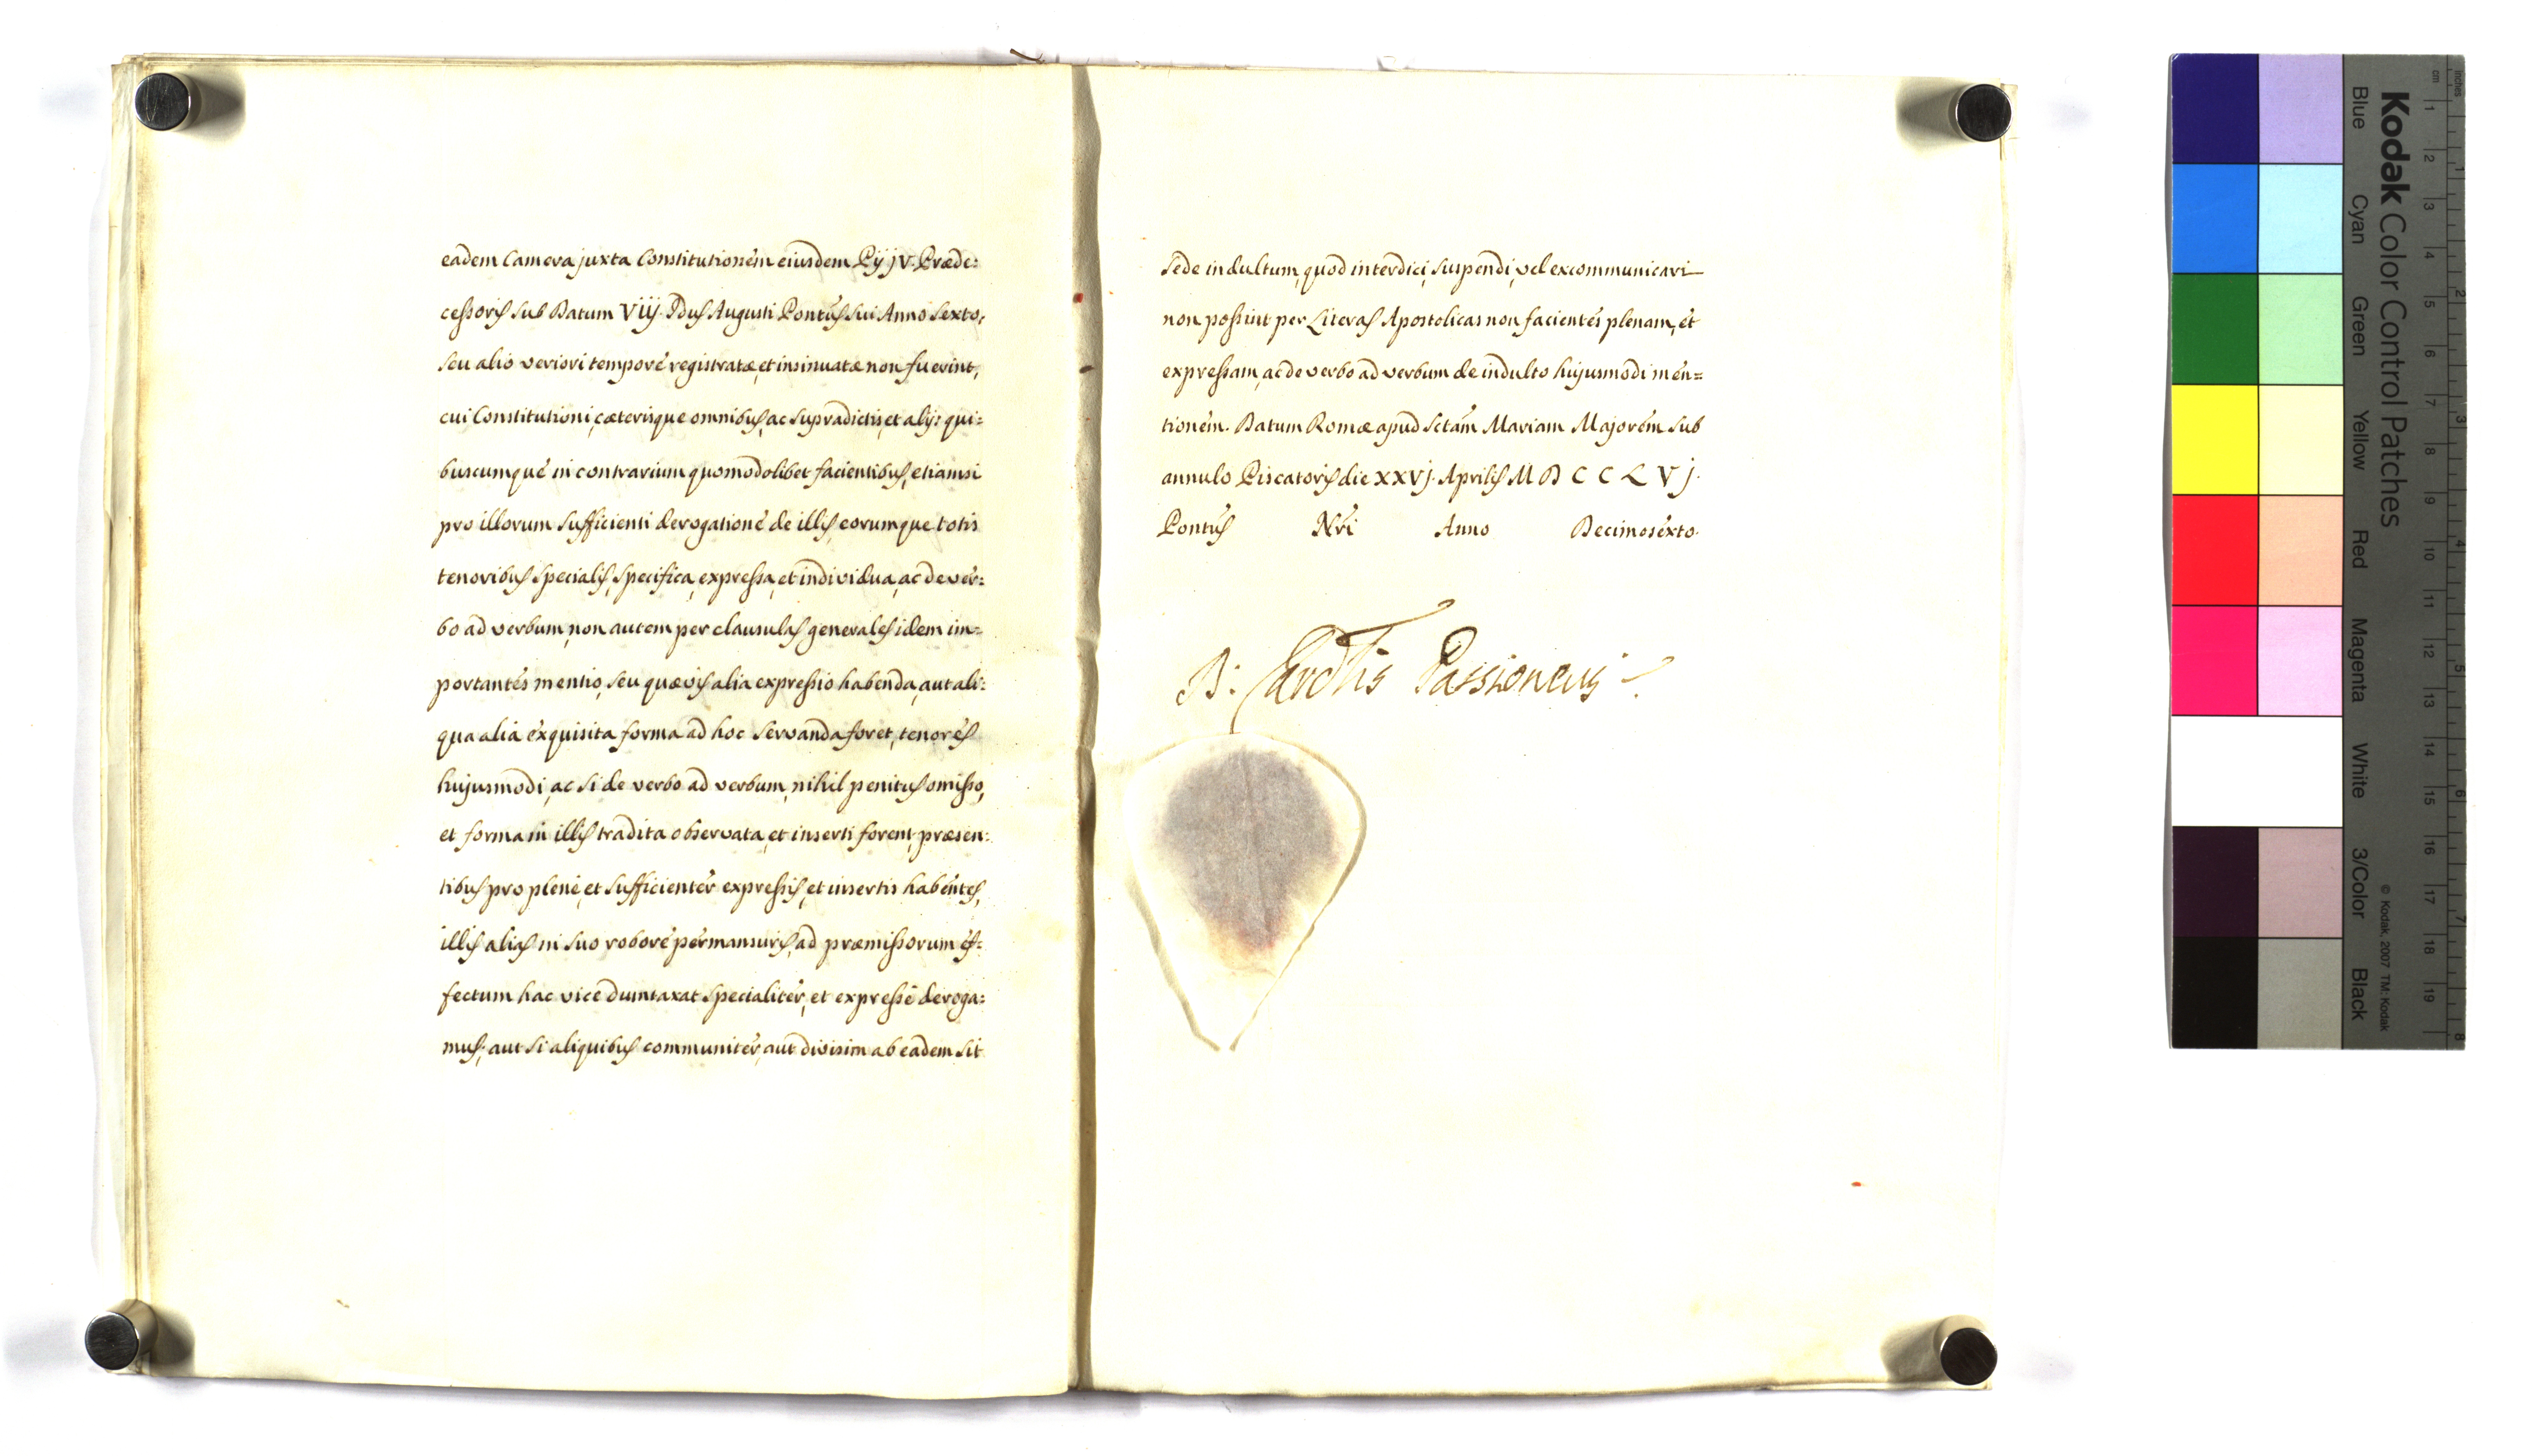 eadem Camera juxta Constitutionem eiusdem Pÿ jV. Præde:
cessoris sub Datum Viij. Idus Augusti Pontus sui Anno Sexto,
seu alio veriori tempore registratæ, et insinuatæ non fuerint,
cui Constitutioni, cæterisque omnibus, ac supradictis, et alijs qui:
buscumque in contrarium quomodolibet facientibus, etiamsi
pro illorum sufficienti derogatione de illis, eorumque totis
tenoribus specialis, specifica, expressa, et individua, ac de ver:
bo ad verbum, non autem per clausulas generales idem im:
portantes mentio, seu quævis alia expressio habenda, aut ali:
qua alia exquisita forma ad hoc servanda foret, tenores
hujusmodi, ac si de verbo ad verbum, nihil penitus omisso,
et forma in illis tradita observata, et inserti forent, præsen:
tibus pro plene, et sufficienter expressis, et insertis habentes,
illis alias in suo robore permansuris, ad præmissorum ef:
fectum hac vice dumtaxat specialiter, et expresse deroga:
mus; aut si aliquibus communiter, aut divisim ab eadem sit
Sede indultum, quod interdici, suspendi, vel excommunicari
non possint per Literas Apostolicas non facientes plenam, et
expressam, ac de verbo ad verbum de indulto hujusmodi men=
tionem. Datum Romæ apud Sctam Mariam Majorem sub
annulo Piscatoris die XXVj. Aprilis M D C C L V j.
Pontus Nri Anno Decimosexto.
D: Cardlis Passioneus
Kodak Color Control Patches
Blue Cyan Green Yellow Red Magenta White 3/Color Black
© Kodak, 2007 TM: Kodak
inches
cm
1 2 3 4 5 6 7 8 9 10 11 12 13 14 15 16 17 18 19
1 2 3 4 5 6 7 8